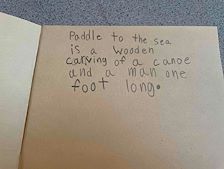 Paddle to the sea
is a wooden
carving of a canoe
and a man one
foot long.